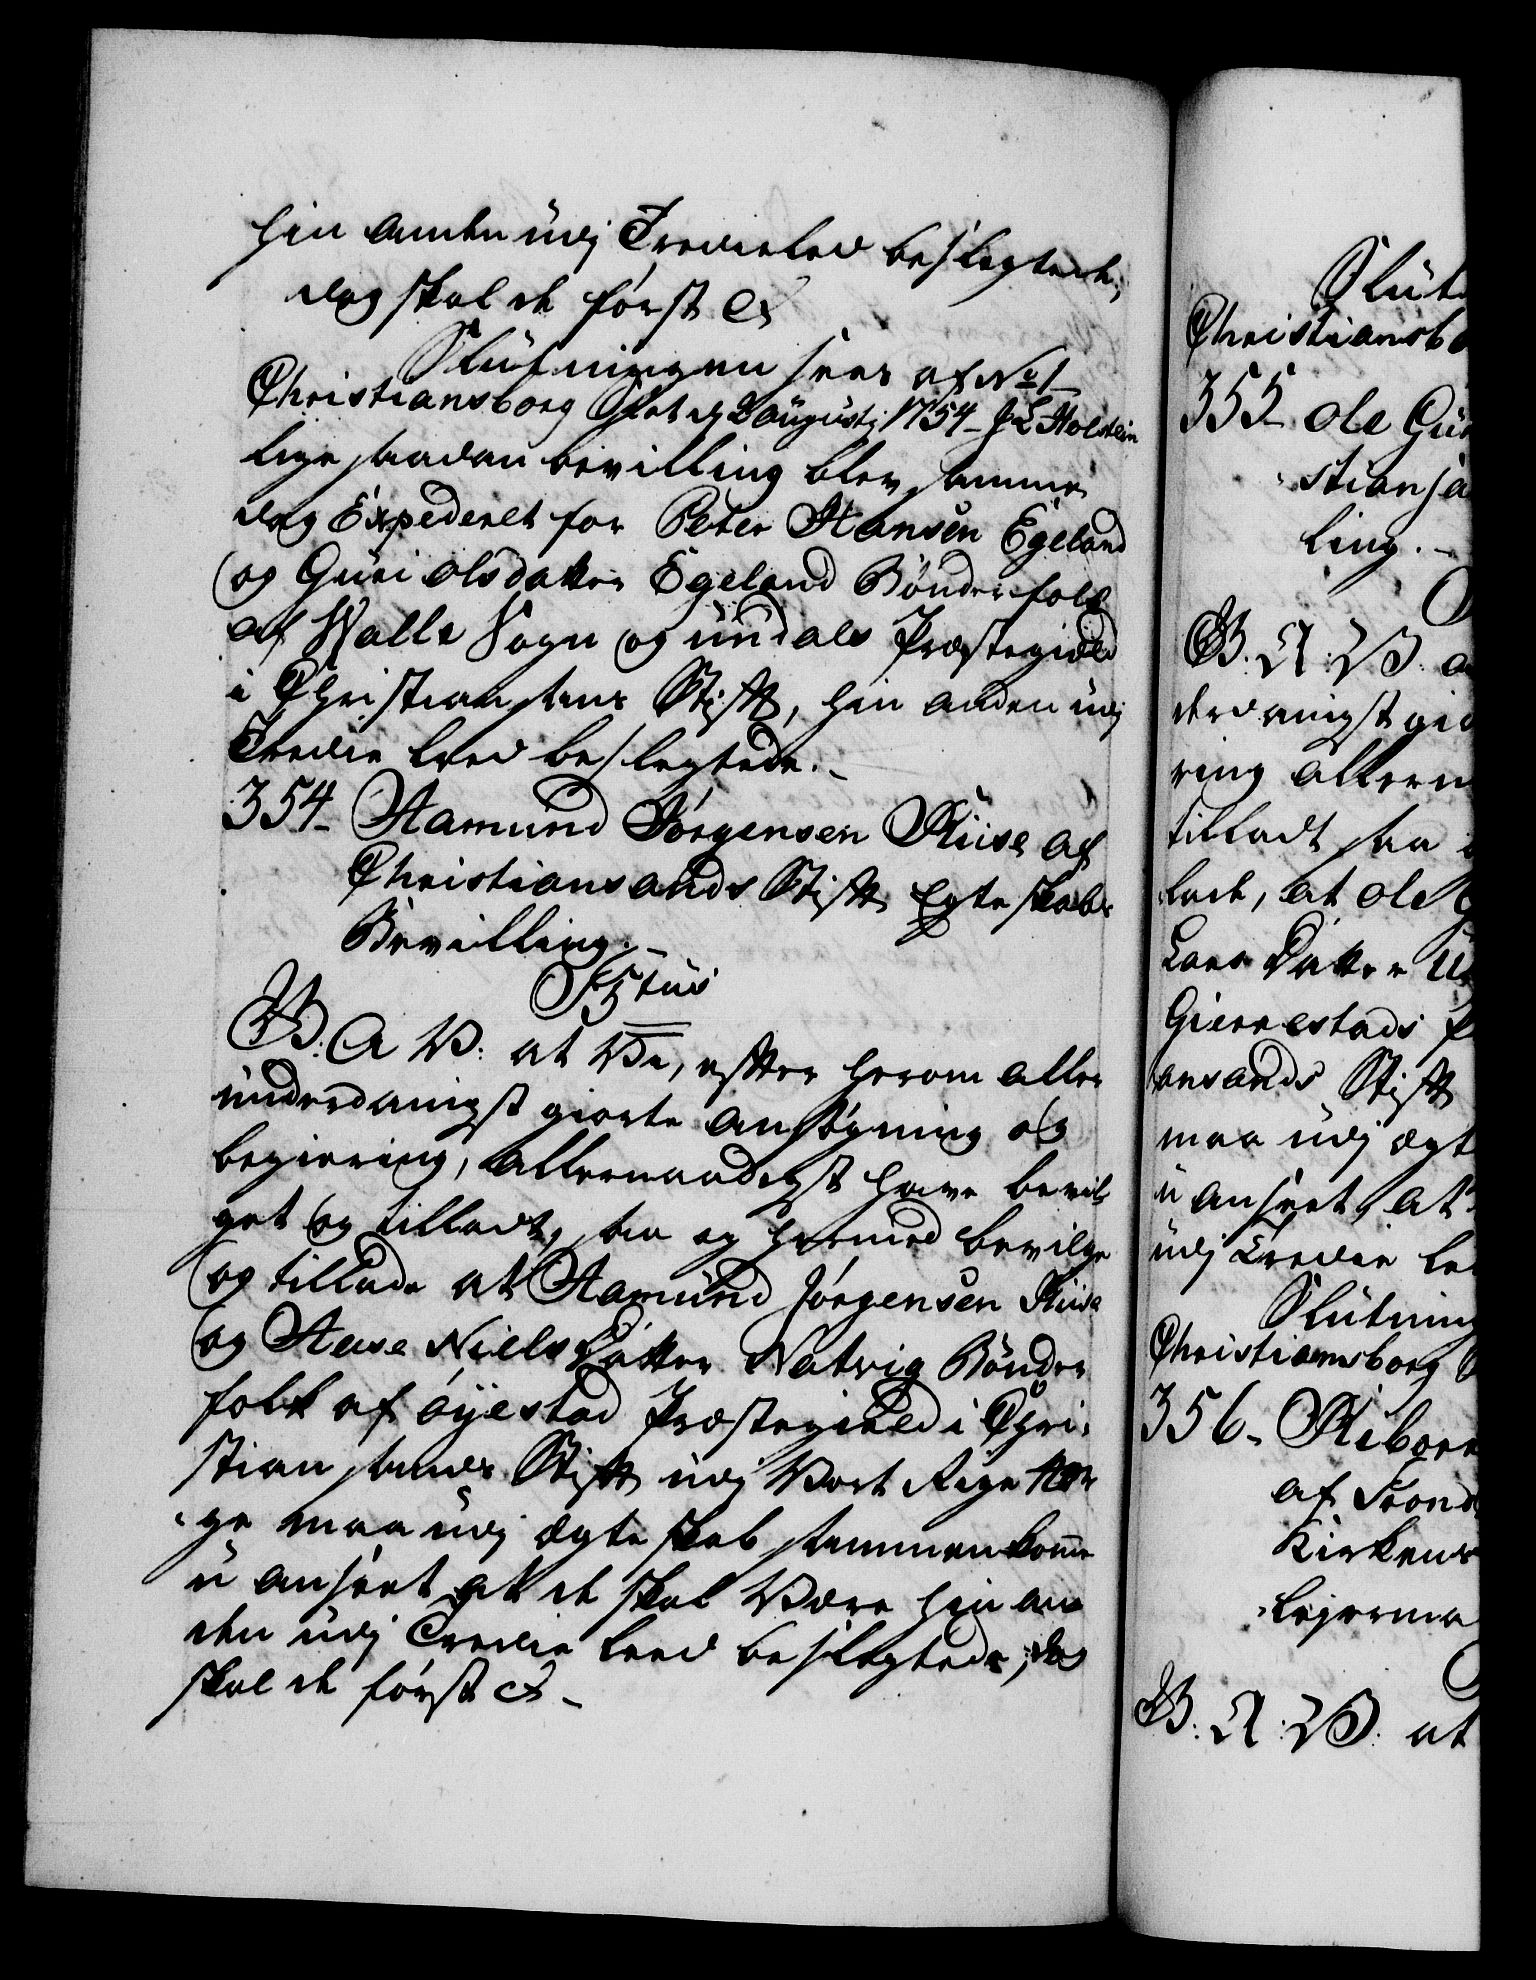 hin anden udj Tredieled beslegtede,
dog skal de først &
Slutningen sees af No 1
Christiansborg Slot d 2 augustj 1754 - J L Holstein
lige saadan bevilling blev samme
dag Expederet for Peter Hansen Egeland
og Guri olsdatter Egeland Bønderfolk
af Walle Sogn og undals Præstegield
i Christiansans Stift, hin anden udj
Tredie leed beslegtede.-
354- Aamund Jørgensen Riise af
Christiansands Stift Egteskabs
Bevilling.-
G. A V: at Vi, efter herom aller
underdanigst giorte ansøgning og
begiering, allernaadigst have bevil-
get og tilladt, saa og hermed bevilge
og tillade at Aamund Jørgensen Riise
og Aase Niels Datter Natvig Bønder
folk af øyestad Præstegield i Chri-
stiansands Stift udj Vort Rige Nor-
ge maa udj ægteskab sammenkomme
u anseet at de skal Være hin an-
den udj Tredie leed beslegtede, dog
skal de først &-
Slut
Christiansbo
355- ole Gu
stiansa
ling.-
G. A. V. a
derdanigst gio
ring allern
tilladt saa
lade, at ole G
Lars Datter
Gierrestads P
ansands Stift
maa udj ægt
u anseet, at
udj Tredie le
Slutning
Christiansborg
356- Riborr
af Trond
Kirkens
lejerma
G. A. V. at